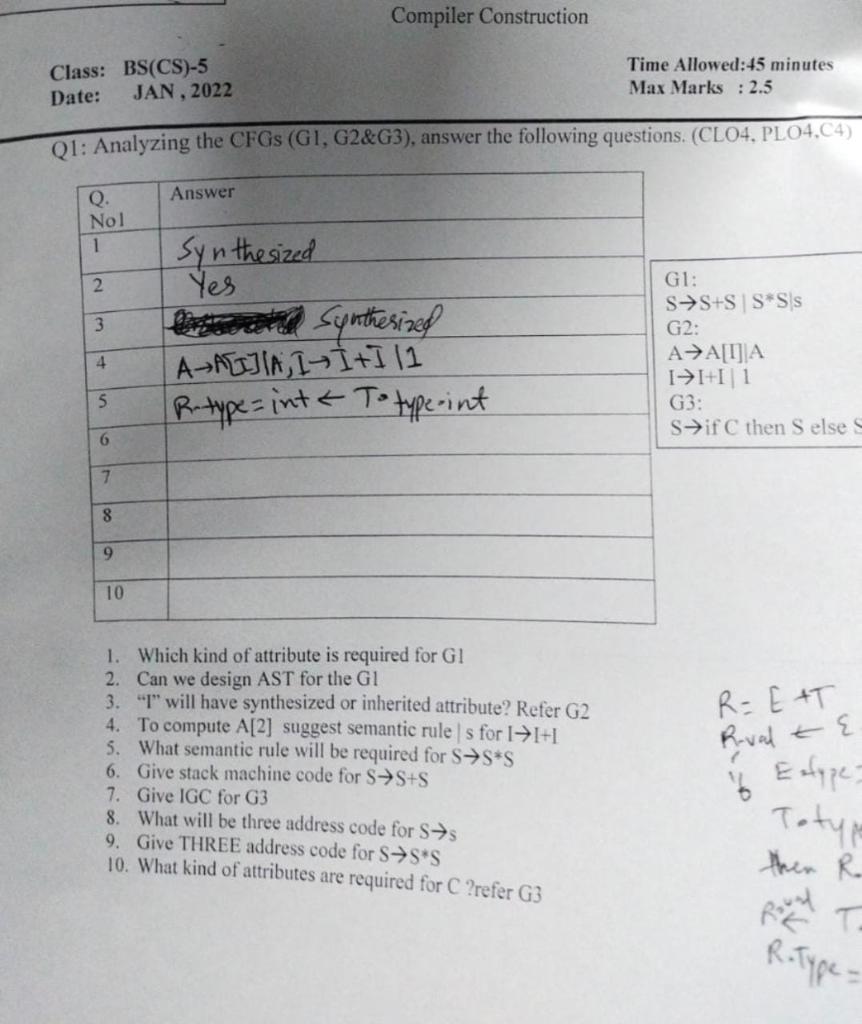 Compiler Construction
Class: BS(CS)-5
Time Allowed:45 minutes
Date: JAN , 2022
Max Marks : 2.5
Q1: Analyzing the CFGs (G1, G2&G3), answer the following questions. (CLO4, PLO4,C4)
Q. No1 Answer
1 Synthesized
2 Yes
3 Synthesized
4 A→A[I]|A, I→I+I|1
5 R.type = int ← T.type=int
6
7
8
9
10
G1:
S→S+S | S*S|s
G2:
A→A[I]|A
I→I+I | 1
G3:
S→if C then S else S
1. Which kind of attribute is required for G1
2. Can we design AST for the G1
3. “I” will have synthesized or inherited attribute? Refer G2
4. To compute A[2] suggest semantic rule | s for I→I+I
5. What semantic rule will be required for S→S*S
6. Give stack machine code for S→S+S
7. Give IGC for G3
8. What will be three address code for S→s
9. Give THREE address code for S→S*S
10. What kind of attributes are required for C ?refer G3
R= E+T
R.val ← E.
if E.type=
T.typ
then R.
R.val ← T.
R.Type =